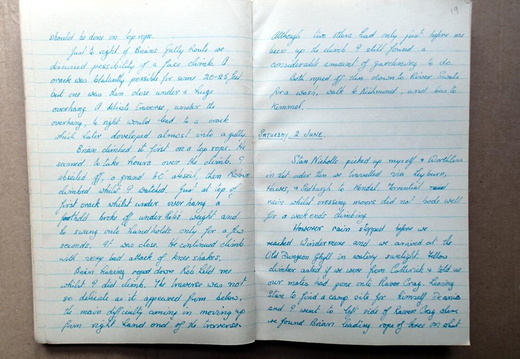 should be done on top rope.
Just to right of Brians Gully Route we
discussed possibility of a face climb. A
crack was blatantly possible for some 20-25 feet
but one was then close under a huge
overhang. A delicate traverse, under the
overhang, to right would lead to a crack
which later developed almost into a gully.
Brian climbed it first on a top rope. He
seemed to take hours over the climb. I
abseiled off, a grand 60' abseil, then
climbed whilst I watched. Just at top of
first crack whilst under overhang a
foothold broke off under Robs weight and
he swung onto handholds only for a few
seconds. It was close. He continued climb
with very bad attack of knee shakes.
Brian having roped down Rob tied me
whilst I did climb. The traverse was not
so delicate as it appeared from below,
the main difficulty coming in moving up
from right hand end of the traverse.
19
Although two others had only just before me
been up the climb I still found a
considerable amount of gardening to do.
Both roped off then down to River Swale
for a wash, walk to Richmond, and bus to
Kimmel.
Saturday 2 June.
Stan Nicholls picked up myself &
in out older then we travelled via Leyburn,
Hawes, & Sedburgh to Kendal. Torrential
rain whilst crossing moors did not bode well
for a weekends climbing.
However rain stopped before we
reached Windermere and we arrived at the
Old Dungeon Ghyll in watery sunlight. Fellow
climber asked if we were from Catterick & told us
our mates had gone onto Raven Crag. Leaving
Stan to find a camp site for himself
and I went to left side of Raven Crag where
we found Brian leading rope of three on what